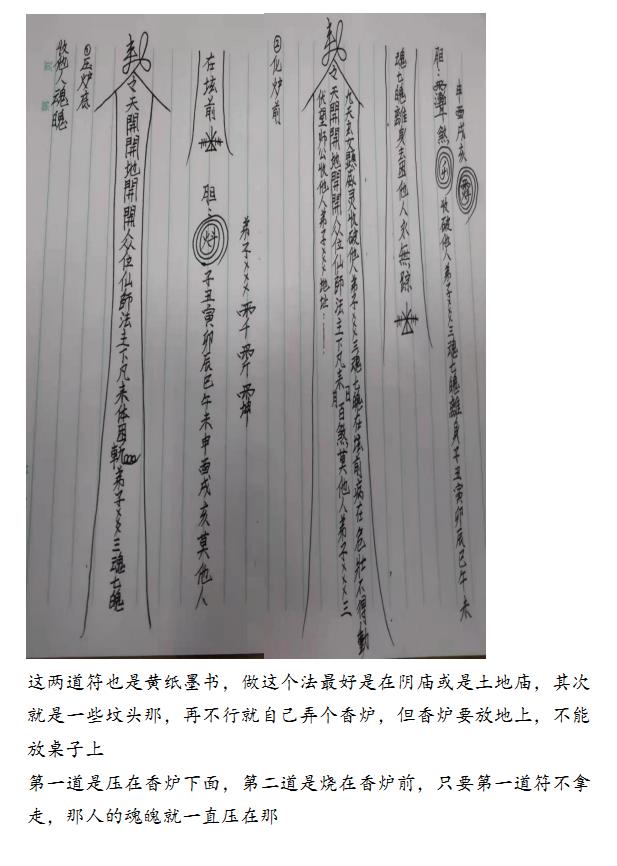 收他人魂魄
①压炉底
令天開開地開開众位仙師法主下凡来体困斬弟子××三魂七魄
在坟前
胆:
子丑寅卯辰巳午未申酉戌亥莫他人
弟子×××
②化炉前
九天玄女顕威灵收破他人弟子×××三魂七魄在坟前病在危壮不得動
令天開開地開開众位仙師法主下凡来 日月百煞莫他人弟子×××三
伏望師公收他人弟子×××地址:……
魂七魄離身去困他人永無踪
胆:
煞
收破他人弟子××三魂七魄離身子丑寅卯辰巳午未
申酉戌亥
这两道符也是黄纸墨书，做这个法最好是在阴庙或是土地庙，其次
就是一些坟头那，再不行就自己弄个香炉，但香炉要放地上，不能
放桌子上
第一道是压在香炉下面，第二道是烧在香炉前，只要第一道符不拿
走，那人的魂魄就一直压在那